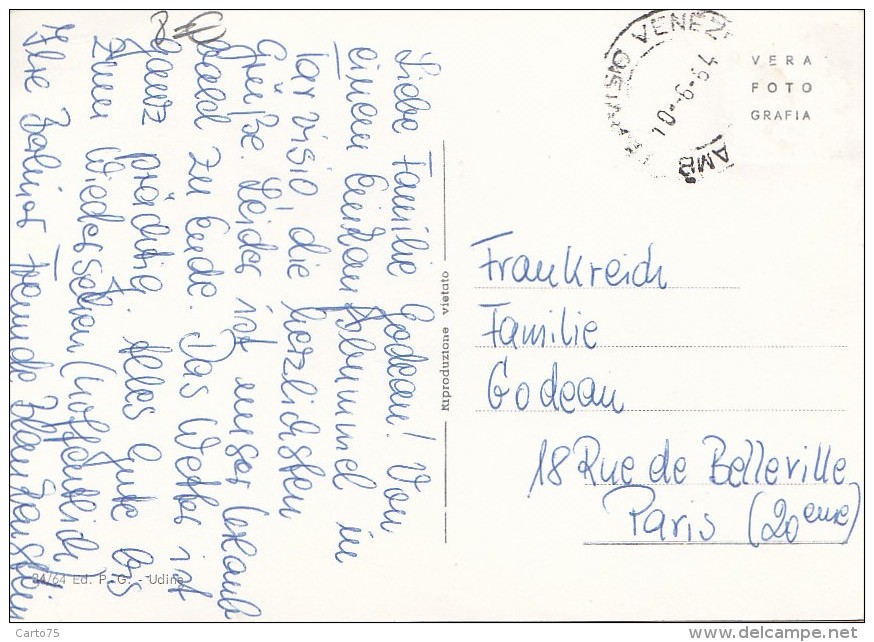 Liebe Familie Godeau! Von
einem Einkaufsbummel in
Tarvisio, die herzlichsten
Grüße. Leider ist unser Urlaub
bald zu Ende. Das Wetter ist
ganz prächtig. Alles Gute bis
zum Wiedersehen (hoffentlich)
Ihre Freunde
VENEZ
10-9-64
AMB
VERA
FOTO
GRAFIA
Riproduzione vietato
Frankreich
Familie
Godeau
18 Rue de Belleville
Paris (20eme)
24/64 Ed. P. G. - Udine
Carto75
www.delcampe.net